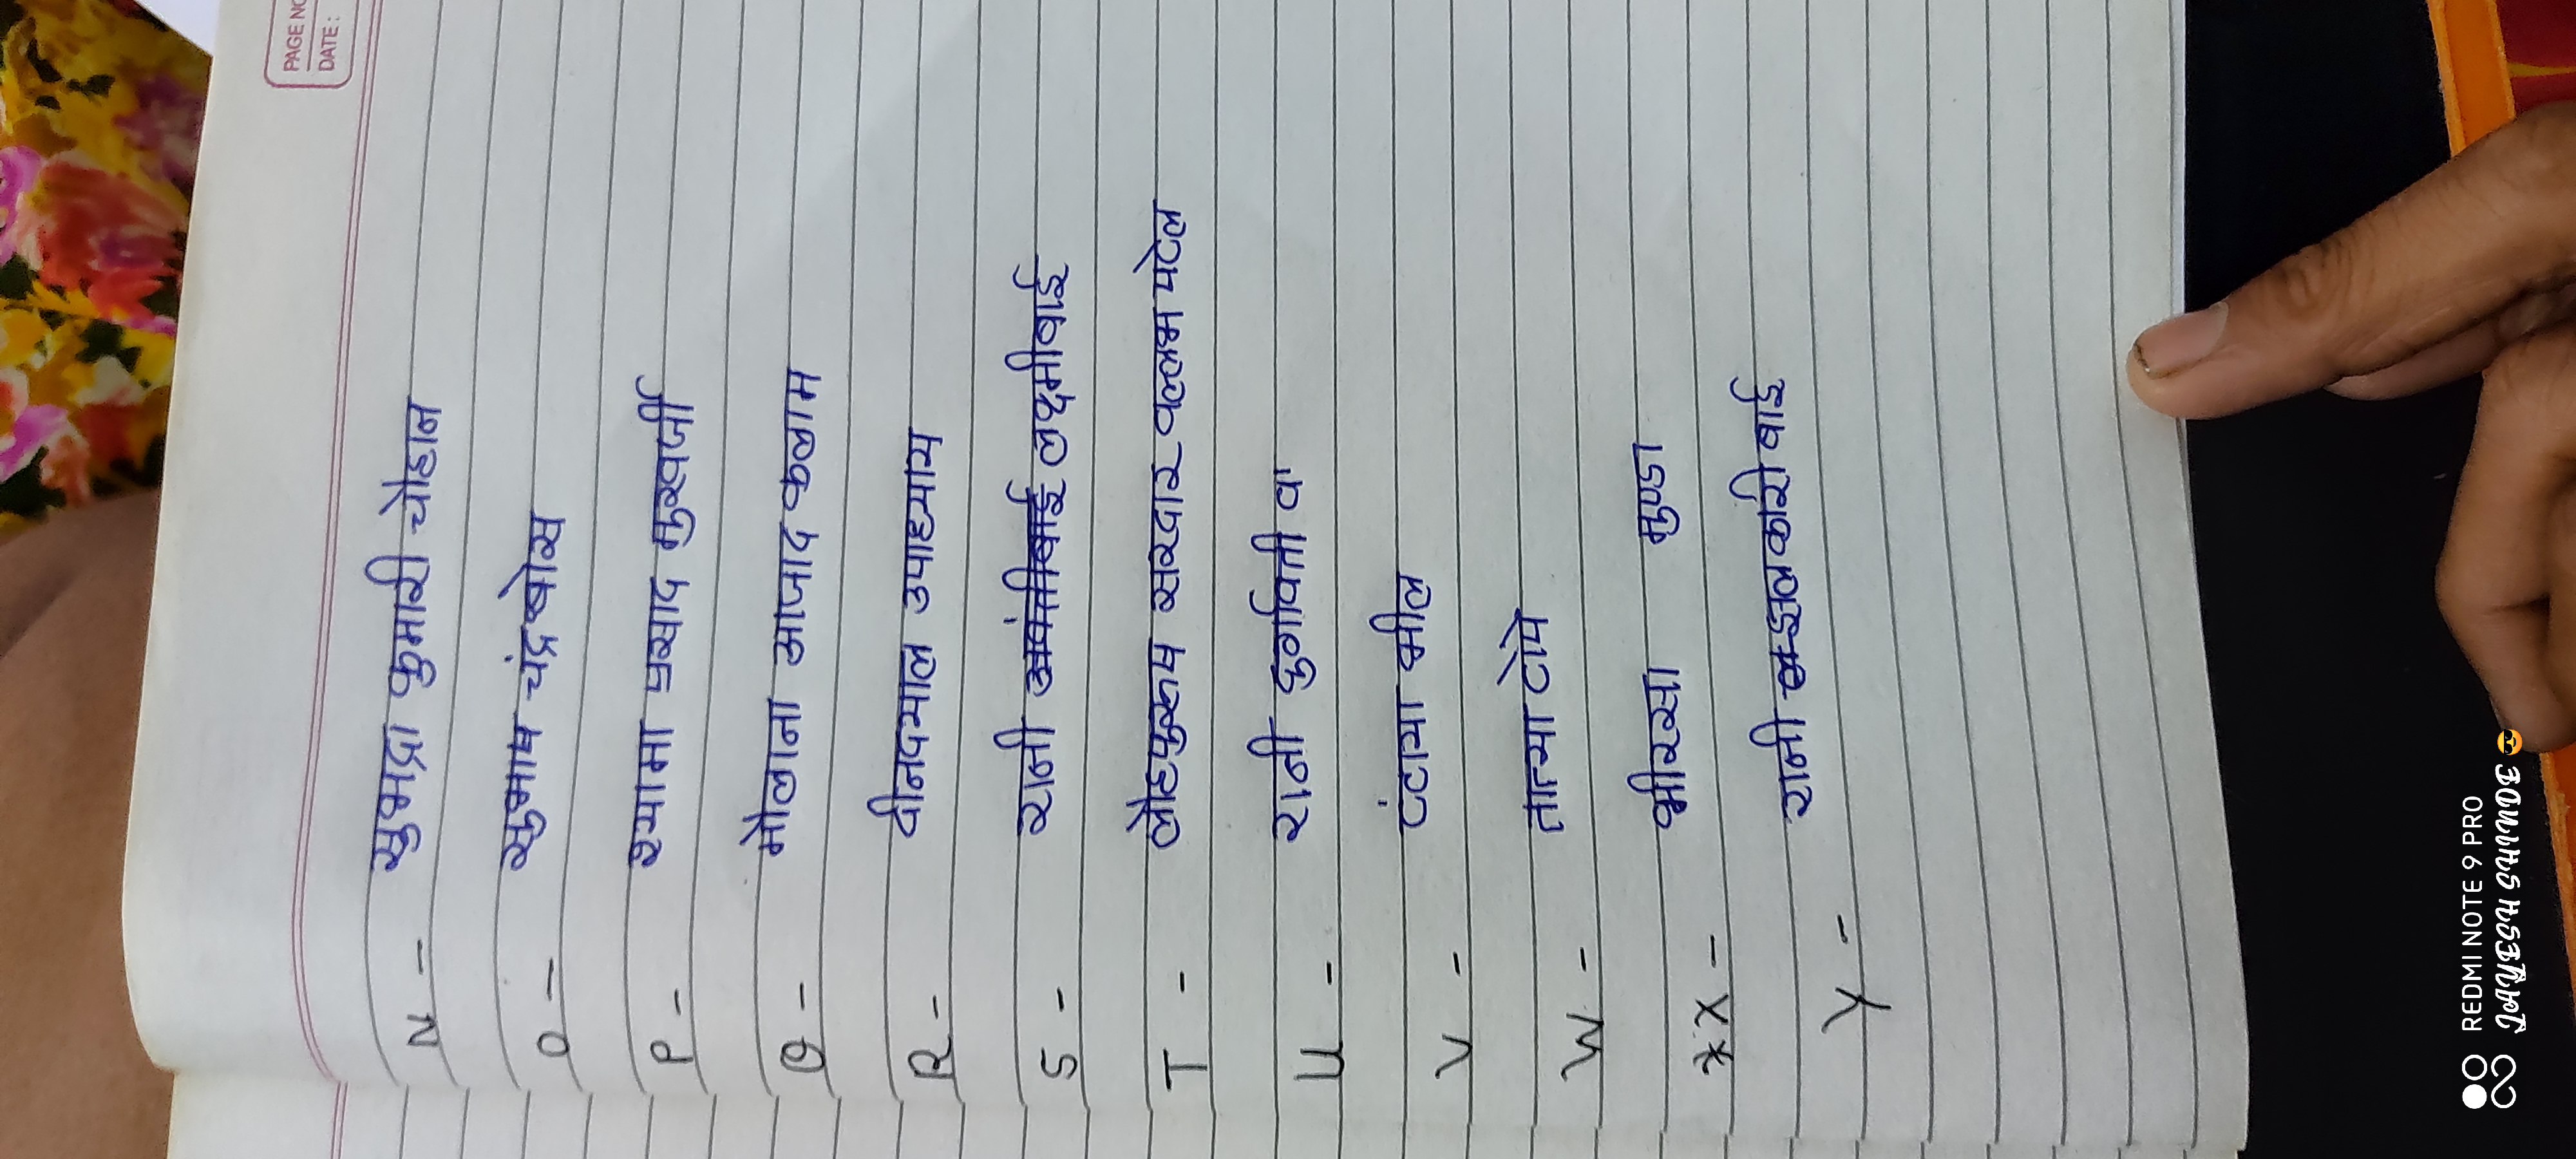 PAGE NO
DATE:
N - सुभद्रा कुमारी चोहान
O - सुभाष चंद्र बोस
P - श्यामा प्रसाद मुखर्जी
Q - मोलाना आजाद कलाम
R - दीनदयाल उपाध्याय
S - रानी लक्ष्मीबाई
T - लोहपुरूष सरदार वल्लभ पटेल
U - रानी दुर्गावती व
V - टंट्या भील
W - तात्या टोपे
X - बीरसा मुण्डा
Y - रानी झलकारी बाई
REDMI NOTE 9 PRO
JAMBESHWAR SHIVAM BODE